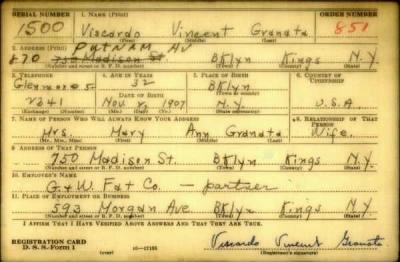 SERIAL NUMBER 1. NAME (Print) ORDER NUMBER
1500 Viscardo Vincent Granata 851
(First) (Middle) (Last)
2. ADDRESS (Print) PUTNAM AV
870 750 Madison St BKlyn Kings N.Y.
(Number and street or R. F. D. number) (Town) (County) (State)
3. TELEPHONE 4. AGE IN YEARS 5. PLACE OF BIRTH 6. COUNTRY OF CITIZENSHIP
Glenmore 5- 32 BKlyn
DATE OF BIRTH (Town or county)
2641 Nov. 1907 N.Y. U.S.A
(Exchange) (Number) (Mo.) (Day) (Yr.) (State or country)
7. NAME OF PERSON WHO WILL ALWAYS KNOW YOUR ADDRESS 8. RELATIONSHIP OF THAT PERSON
Mrs. Mary Ann Granata Wife.
(Mr., Mrs., Miss) (First) (Middle) (Last)
9. ADDRESS OF THAT PERSON
750 Madison St. BKlyn Kings N.Y.
(Number and street or R. F. D. number) (Town) (County) (State)
10. EMPLOYER'S NAME
G & W Fat Co. — partner
11. PLACE OF EMPLOYMENT OR BUSINESS
593 Morgan Ave BKlyn Kings N.Y.
(Number and street or R. F. D. number) (Town) (County) (State)
I AFFIRM THAT I HAVE VERIFIED ABOVE ANSWERS AND THAT THEY ARE TRUE.
REGISTRATION CARD
D. S. S. Form 1 (over) Viscardo Vincent Granata
(Registrant's signature)